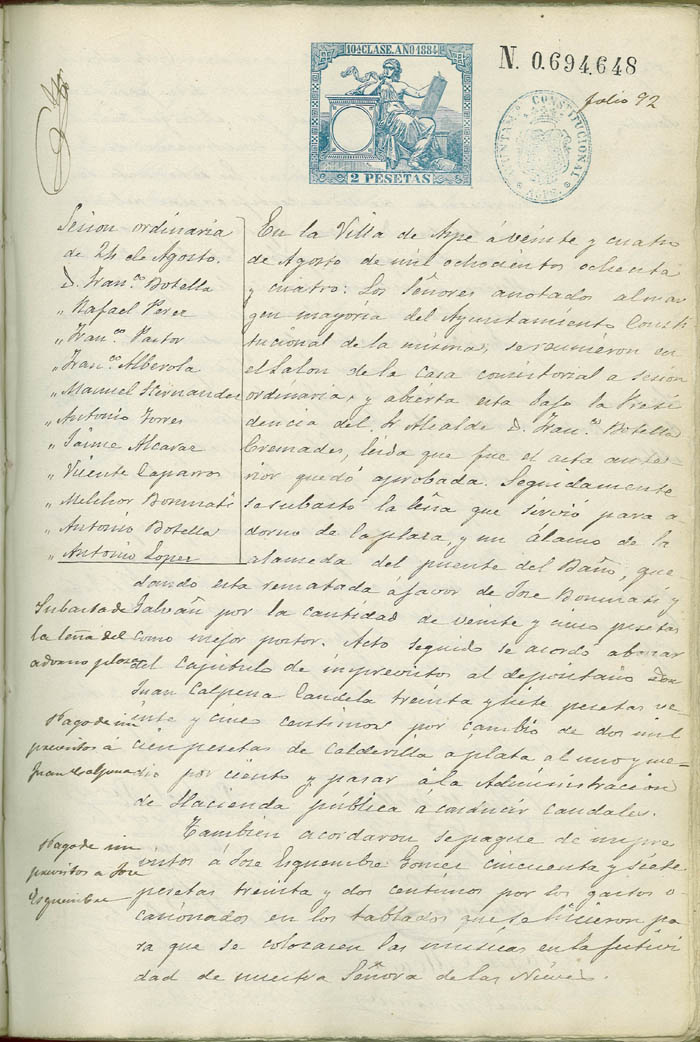 10ª CLASE. AÑO 1884
2 PESETAS
N. 0.694.648
AYUNTAMº CONSTITUCIONAL
* ASPE *
folio 92
Sesion ordinaria
de 24 de Agosto.
D. Franco Botella
" Rafael Perez
" Franco Pastor
" Franco Alberola
" Manuel Hernandez
" Antonio Torres
" Jaime Alcaraz
" Vicente Caparros
" Melchor Bonmati
" Antonio Botella
" Antonio Lopez
En la Villa de Aspe á veinte y cuatro
de Agosto de mil ochocientos ochenta
y cuatro: Los Señores anotados al mar
gen mayoria del Ayuntamiento Consti
tucional de la misma, se reunieron en
el Salon de la Casa consistorial a sesion
ordinaria, y abierta esta bajo la Presi
dencia del Sr Alcalde D. Franco Botella
Cremades, leida que fue el acta ante
rior quedó aprobada. Seguidamente
se subastó la leña que sirvió para a
dorno de la plaza, y un álamo de la
alameda del puente del Baño, que
dando esta rematada á favor de Jose Bonmati y
Galvañ por la cantidad de veinte y una pesetas
como mejor postor. Acto seguido se acordó abonar
del Capitulo de imprevistos al depositario Don
Juan Calpena Candela treinta y siete pesetas ve
inte y cinco centimos por cambio de dos mil
cien pesetas de Calderilla a plata al uno y me-
dio por ciento y pasar á la Administracion
de Hacienda pública á conducir caudales.
Tambien acordaron se pague de impre
vistos á Jose Esquembre Gomez cincuenta y siete
pesetas treinta y dos centimos por los gastos o
casionados en los tablados que se hicieron pa
ra que se colocasen las musicas en la festivi
dad de nuestra Señora de las Nieves.
Subasta de
la leña del
adorno plaza
Pago de im
previstos á
Juan Calpena
Pago de im
previstos a Jose
Esquembre